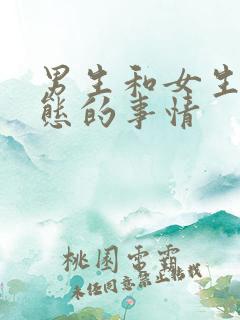 男生和女生
态的事情
桃园雷霸
未经同意禁止转载